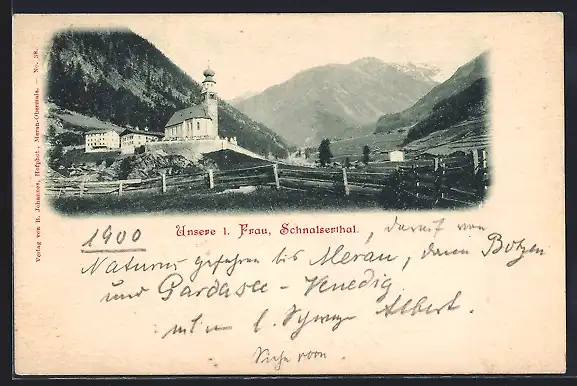 Verlag von B. Johannes, Hofphot., Meran-Obermais. — No. 38.
Unsere l. Frau, Schnalserthal.
1900
darauf von
Naturns gefahren bis Meran, dann Botzen
und Gardasee - Venedig
mit l. Schwager Albert.
Siehe vorn.